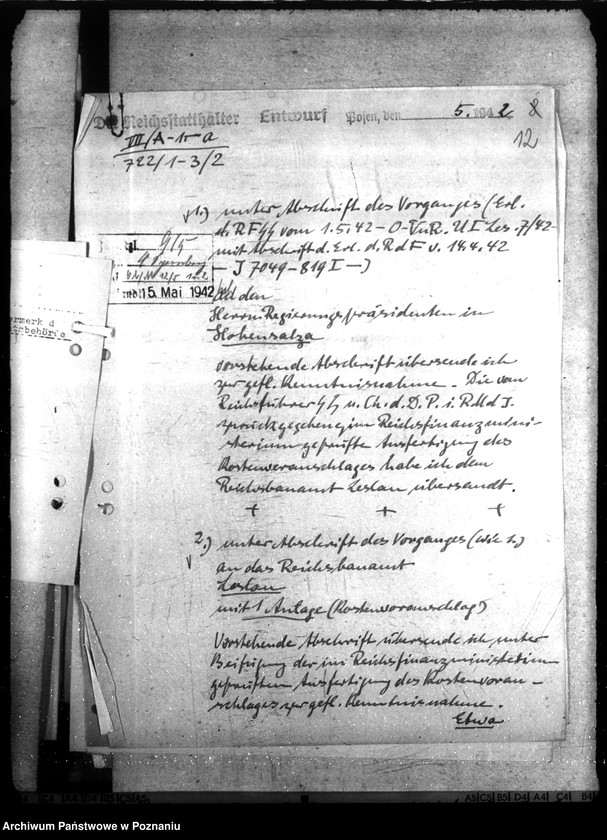 Der Reichsstatthalter Entwurf Posen, den 5. 1942
8
12
VII/A-15-a
722/1-3/2
1.) unter Abschrift des Vorganges (Erl.
d. RFSS vom 1.5.42-O-VuR. U I Les. 7/42-
mit Abschrift d. Erl. d. RdF v. 14.4.42
- J 7049-819 I -)
915
15. Mai 1942
An den
Herrn Regierungspräsidenten in
Hohensalza
ermerk d
behörde
vorstehende Abschrift übersende ich
zur gefl. Kenntnisnahme. Die vom
Reichsführer SS u. Ch. d. D. P. i. RMdJ.
zurückgegebene, im Reichsfinanzmini-
sterium geprüfte Ausfertigung des
Kostenvoranschlages habe ich dem
Reichsbauamt Leslau übersandt.
+ + +
2.) unter Abschrift des Vorganges (wie 1.)
an das Reichsbauamt
Leslau
mit 1 Anlage (Kostenvoranschlag)
Vorstehende Abschrift übersende ich unter
Beifügung der im Reichsfinanzministerium
geprüften Ausfertigung des Kostenvoran-
schlages zur gefl. Kenntnisnahme.
Etwa
A5 C5 B5 D4 A4 C4 B4
Archiwum Państwowe w Poznaniu